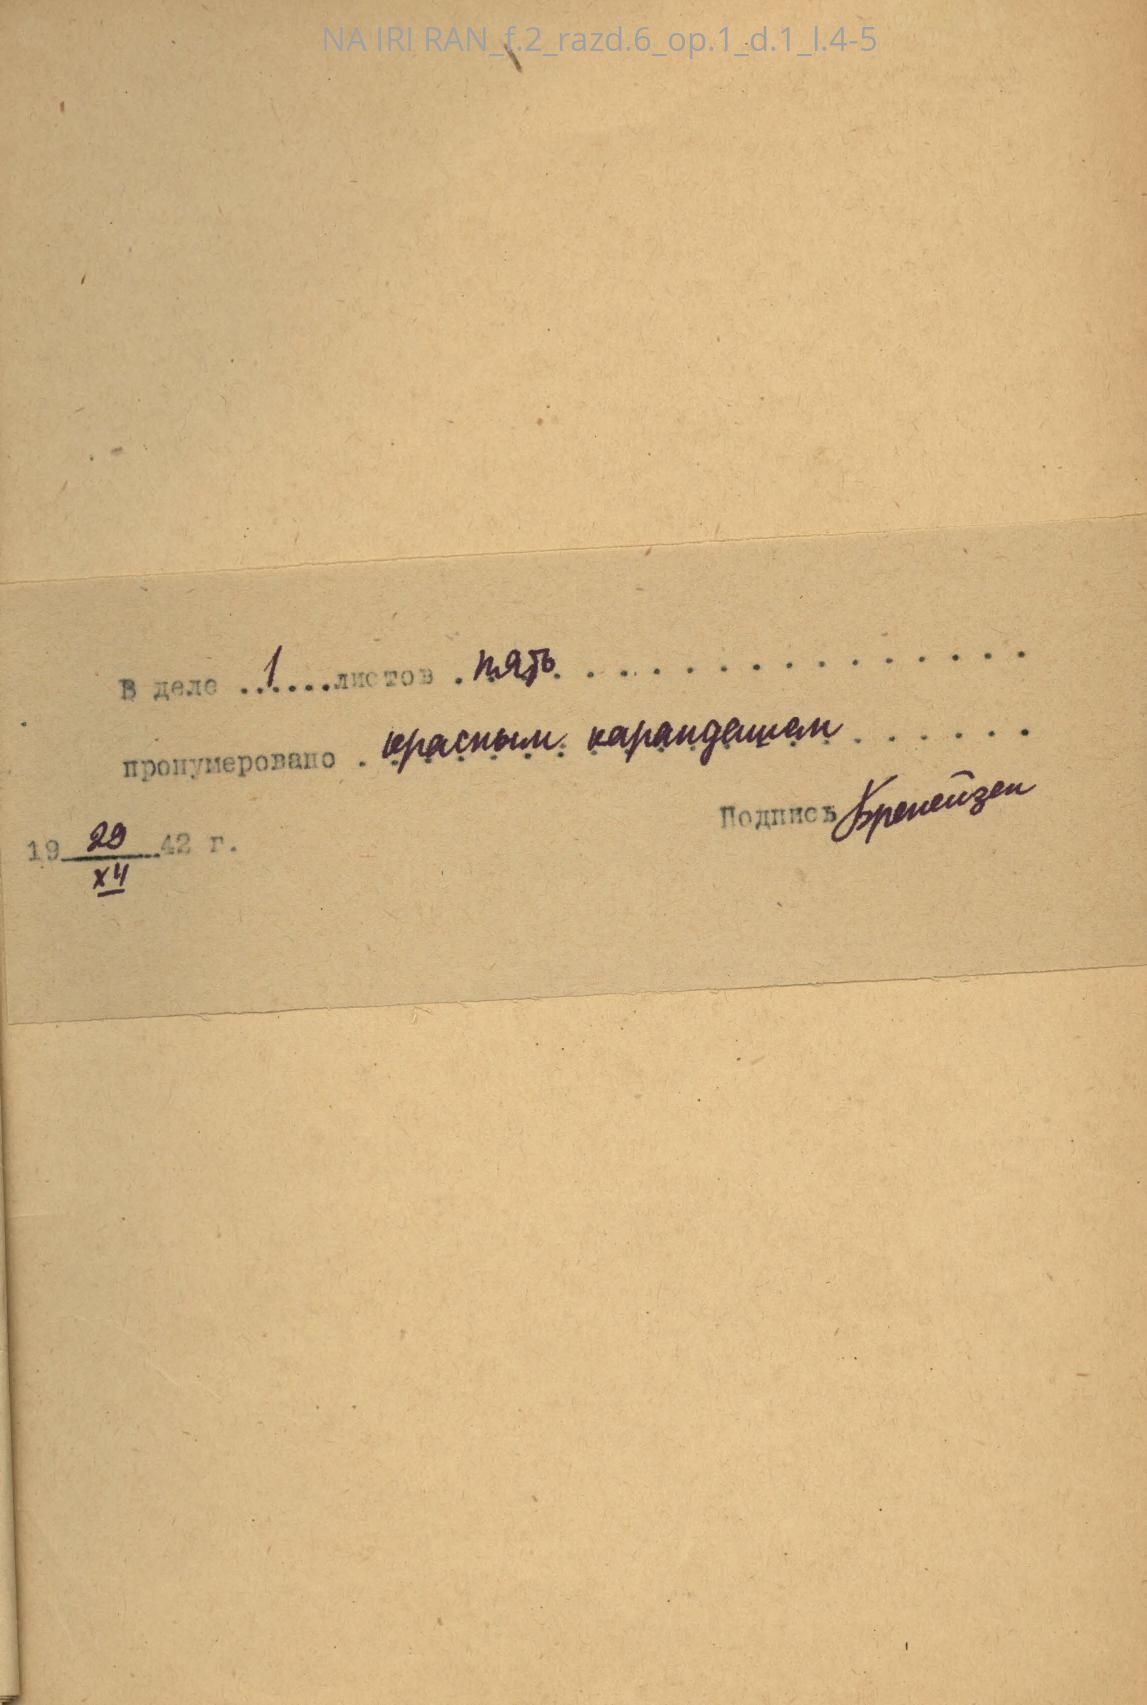 NA IRI RAN_f.2_razd.6_op.1_d.1_l.4-5
В деле ..1....листов .пять. . . . . . . . . . . . . . .
пронумеровано . красным карандашом . . . . . .
Подпись
19 29/XII 42 г.